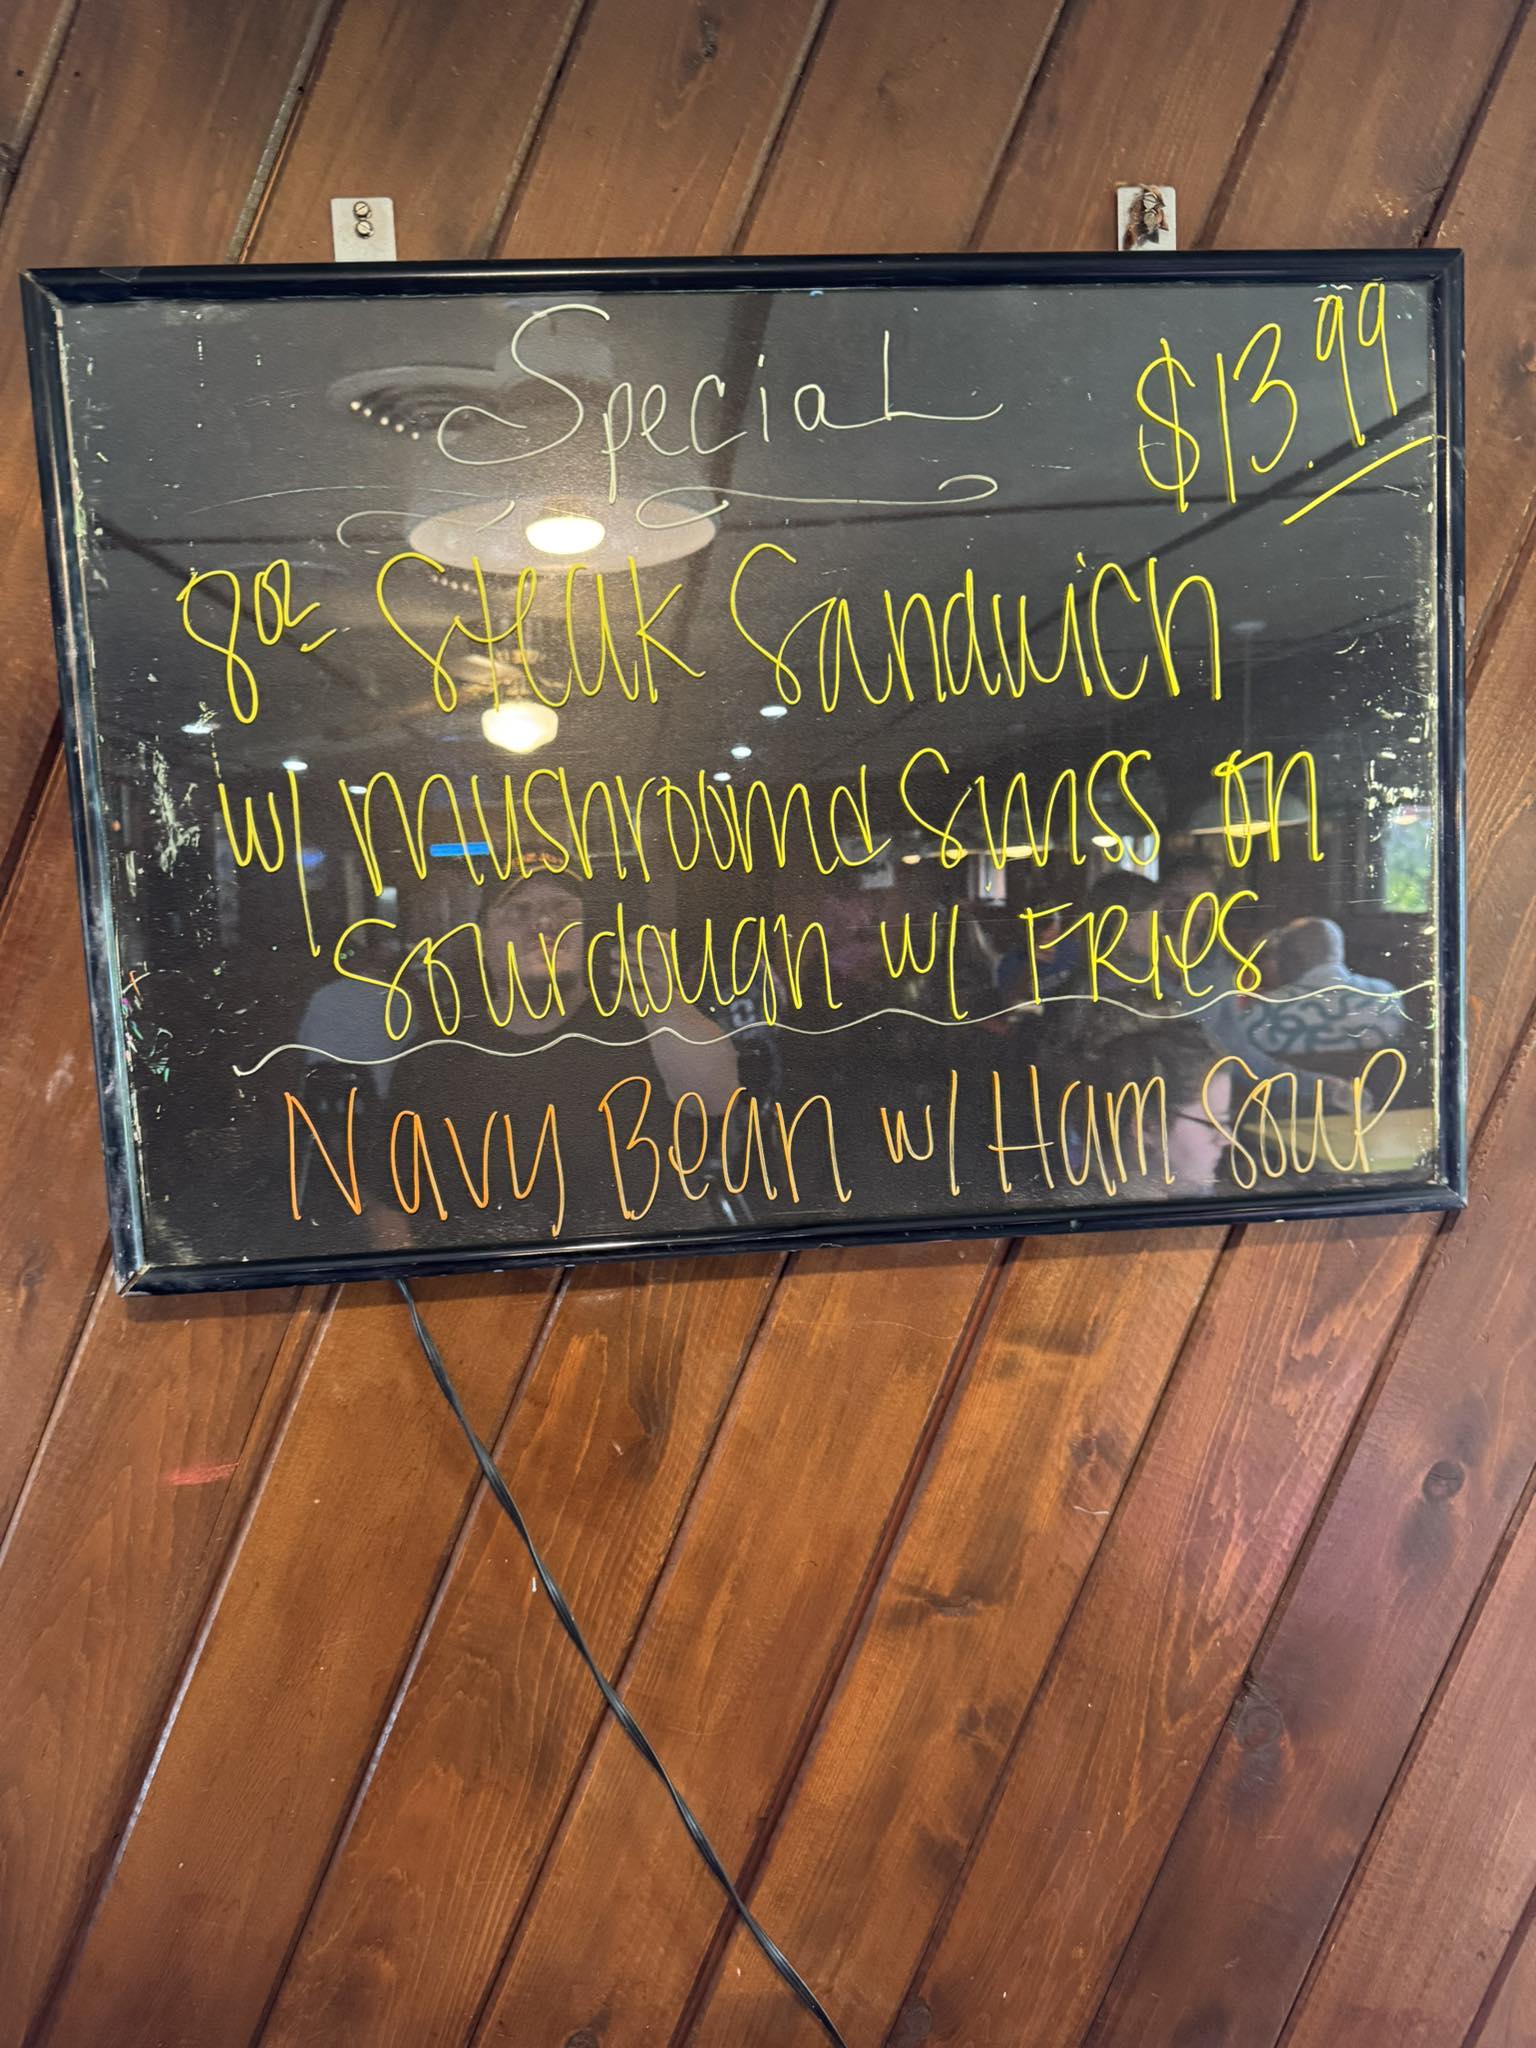 Special
$13.99
8oz Steak Sandwich
w/ mushroom & swiss on
Sourdough w/ FRIES
Navy Bean w/ Ham Soup